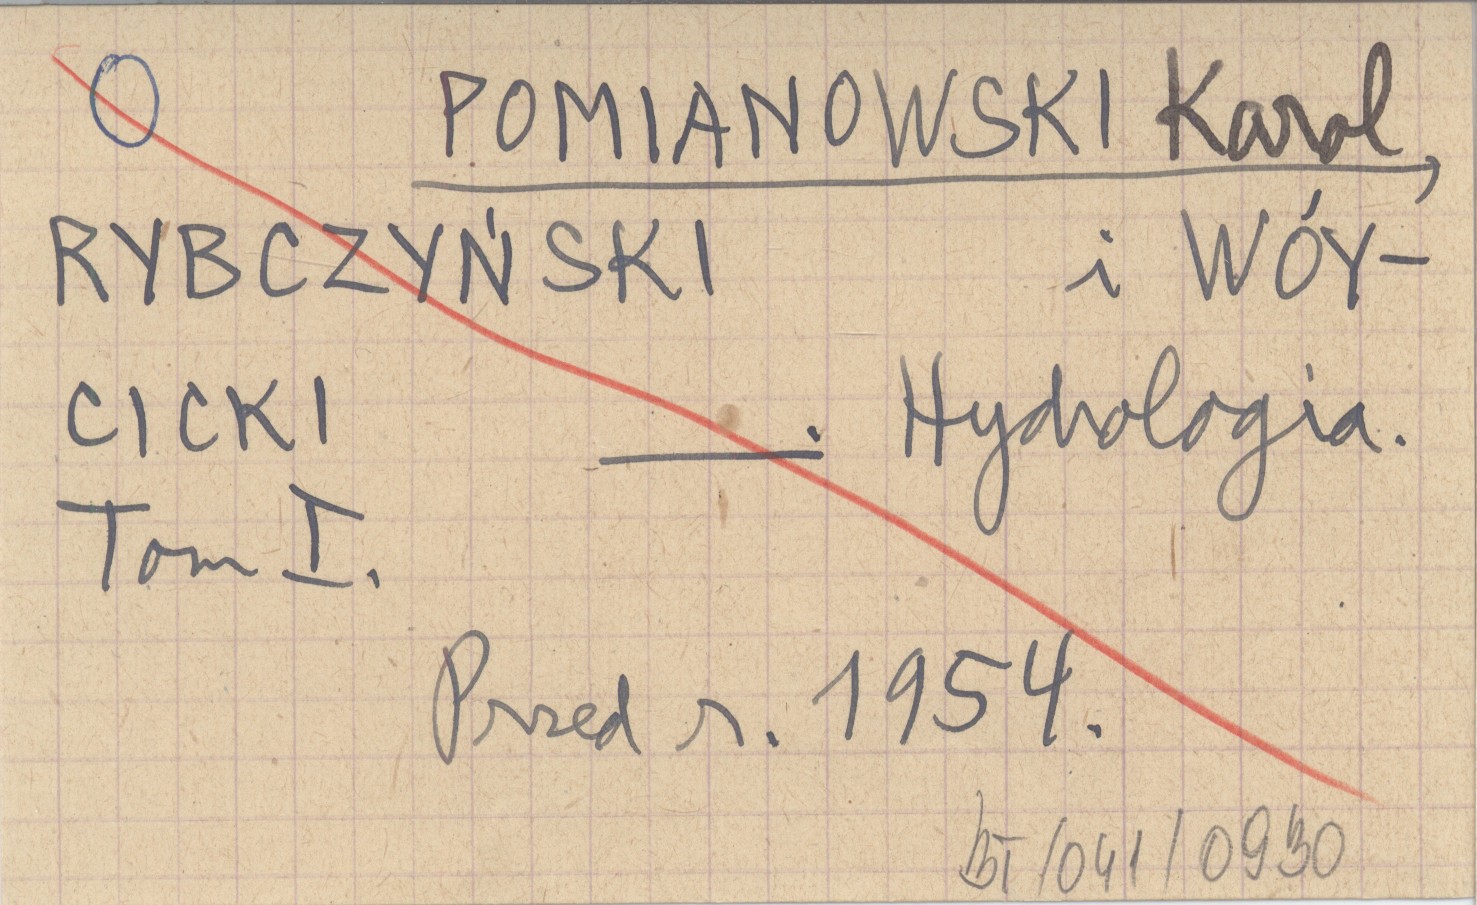 O POMIANOWSKI Karol,
RYBCZYŃSKI i WÓY-
CICKI ____. Hydrologia.
Tom I.
Przed r. 1954.
BT/041/0930